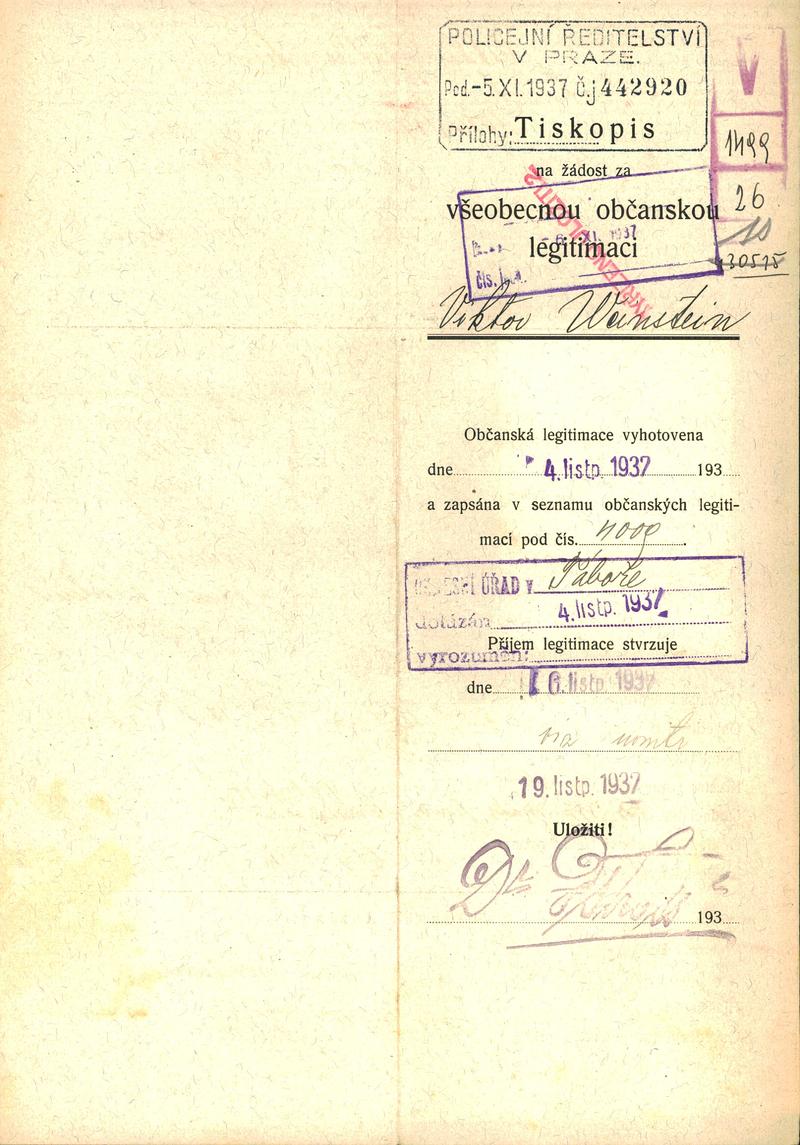 POLICEJNÍ ŘEDITELSTVÍ
V PRAZE.
Pod.-5.XI.1937 č.j 442920
Přílohy: Tiskopis
V
1499
26
10
430515
na žádost za
všeobecnou občanskou
legitimaci
čís.
Viktor Weinstein
Občanská legitimace vyhotovena
dne 4. listp. 1937 193
a zapsána v seznamu občanských legiti-
mací pod čís. 4009
OKRESNÍ ÚŘAD v Táboře
dotázán 4. listp. 1937
Příjem legitimace stvrzuje
vyrozuměn:
dne 6. listp 1937
viz
19. listp. 1937
Uložiti!
Dr
193